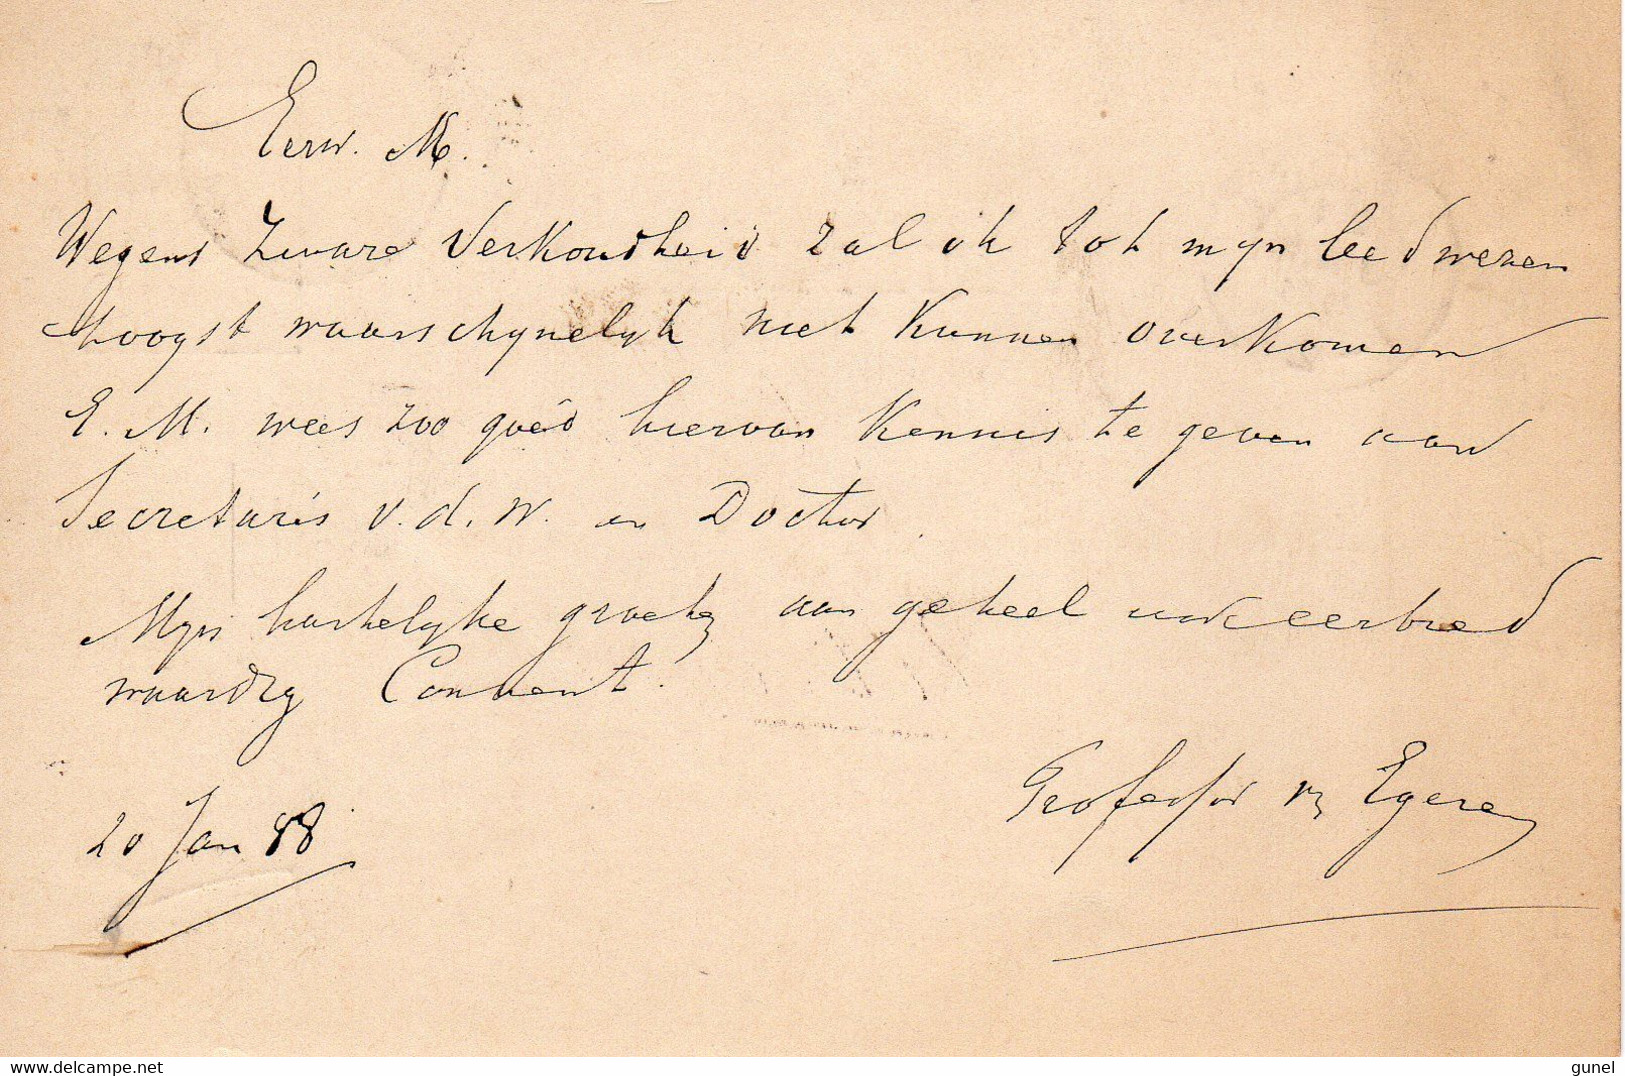 Eerw. M.
Wegens zware Verkoudheid zal ik tot mijn leedwezen
hoogst waarschynelyk niet kunnen overkomen
E. M. wees zoo goed hiervan kennis te geven aan
Secretaris v. d. W. en Doctor.
Myn hartelyke groeten aan geheel uw eerbied
waardig Convent.
Professor v Egeren
20 Jan 88
www.delcampe.net
gunel